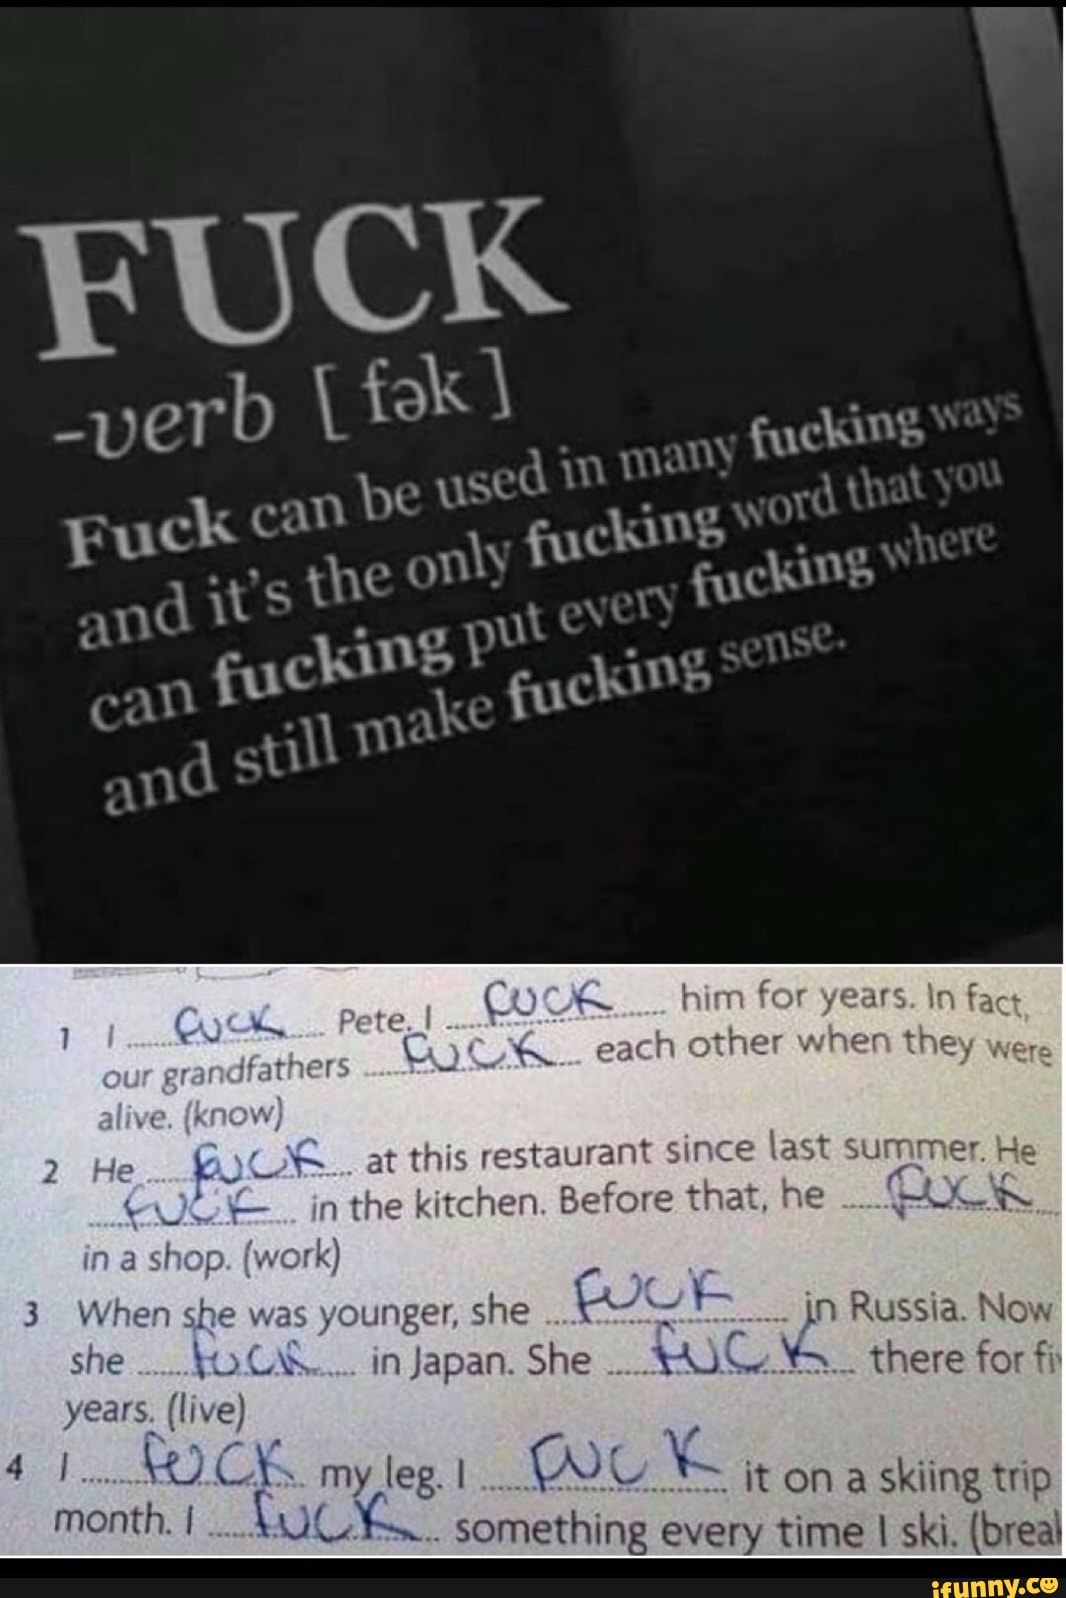 FUCK
-verb [ fək ]
Fuck can be used in many fucking ways
and it's the only fucking word that you
can fucking put every fucking where
and still make fucking sense.
1 I FUCK Pete. I FUCK him for years. In fact,
our grandfathers FUCK each other when they were
alive. (know)
2 He FUCK at this restaurant since last summer. He
FUCK in the kitchen. Before that, he FUCK
in a shop. (work)
3 When she was younger, she FUCK in Russia. Now
she FUCK in Japan. She FUCK there for fi
years. (live)
4 I FUCK my leg. I FUCK it on a skiing trip
month. I FUCK something every time I ski. (break
ifunny.co